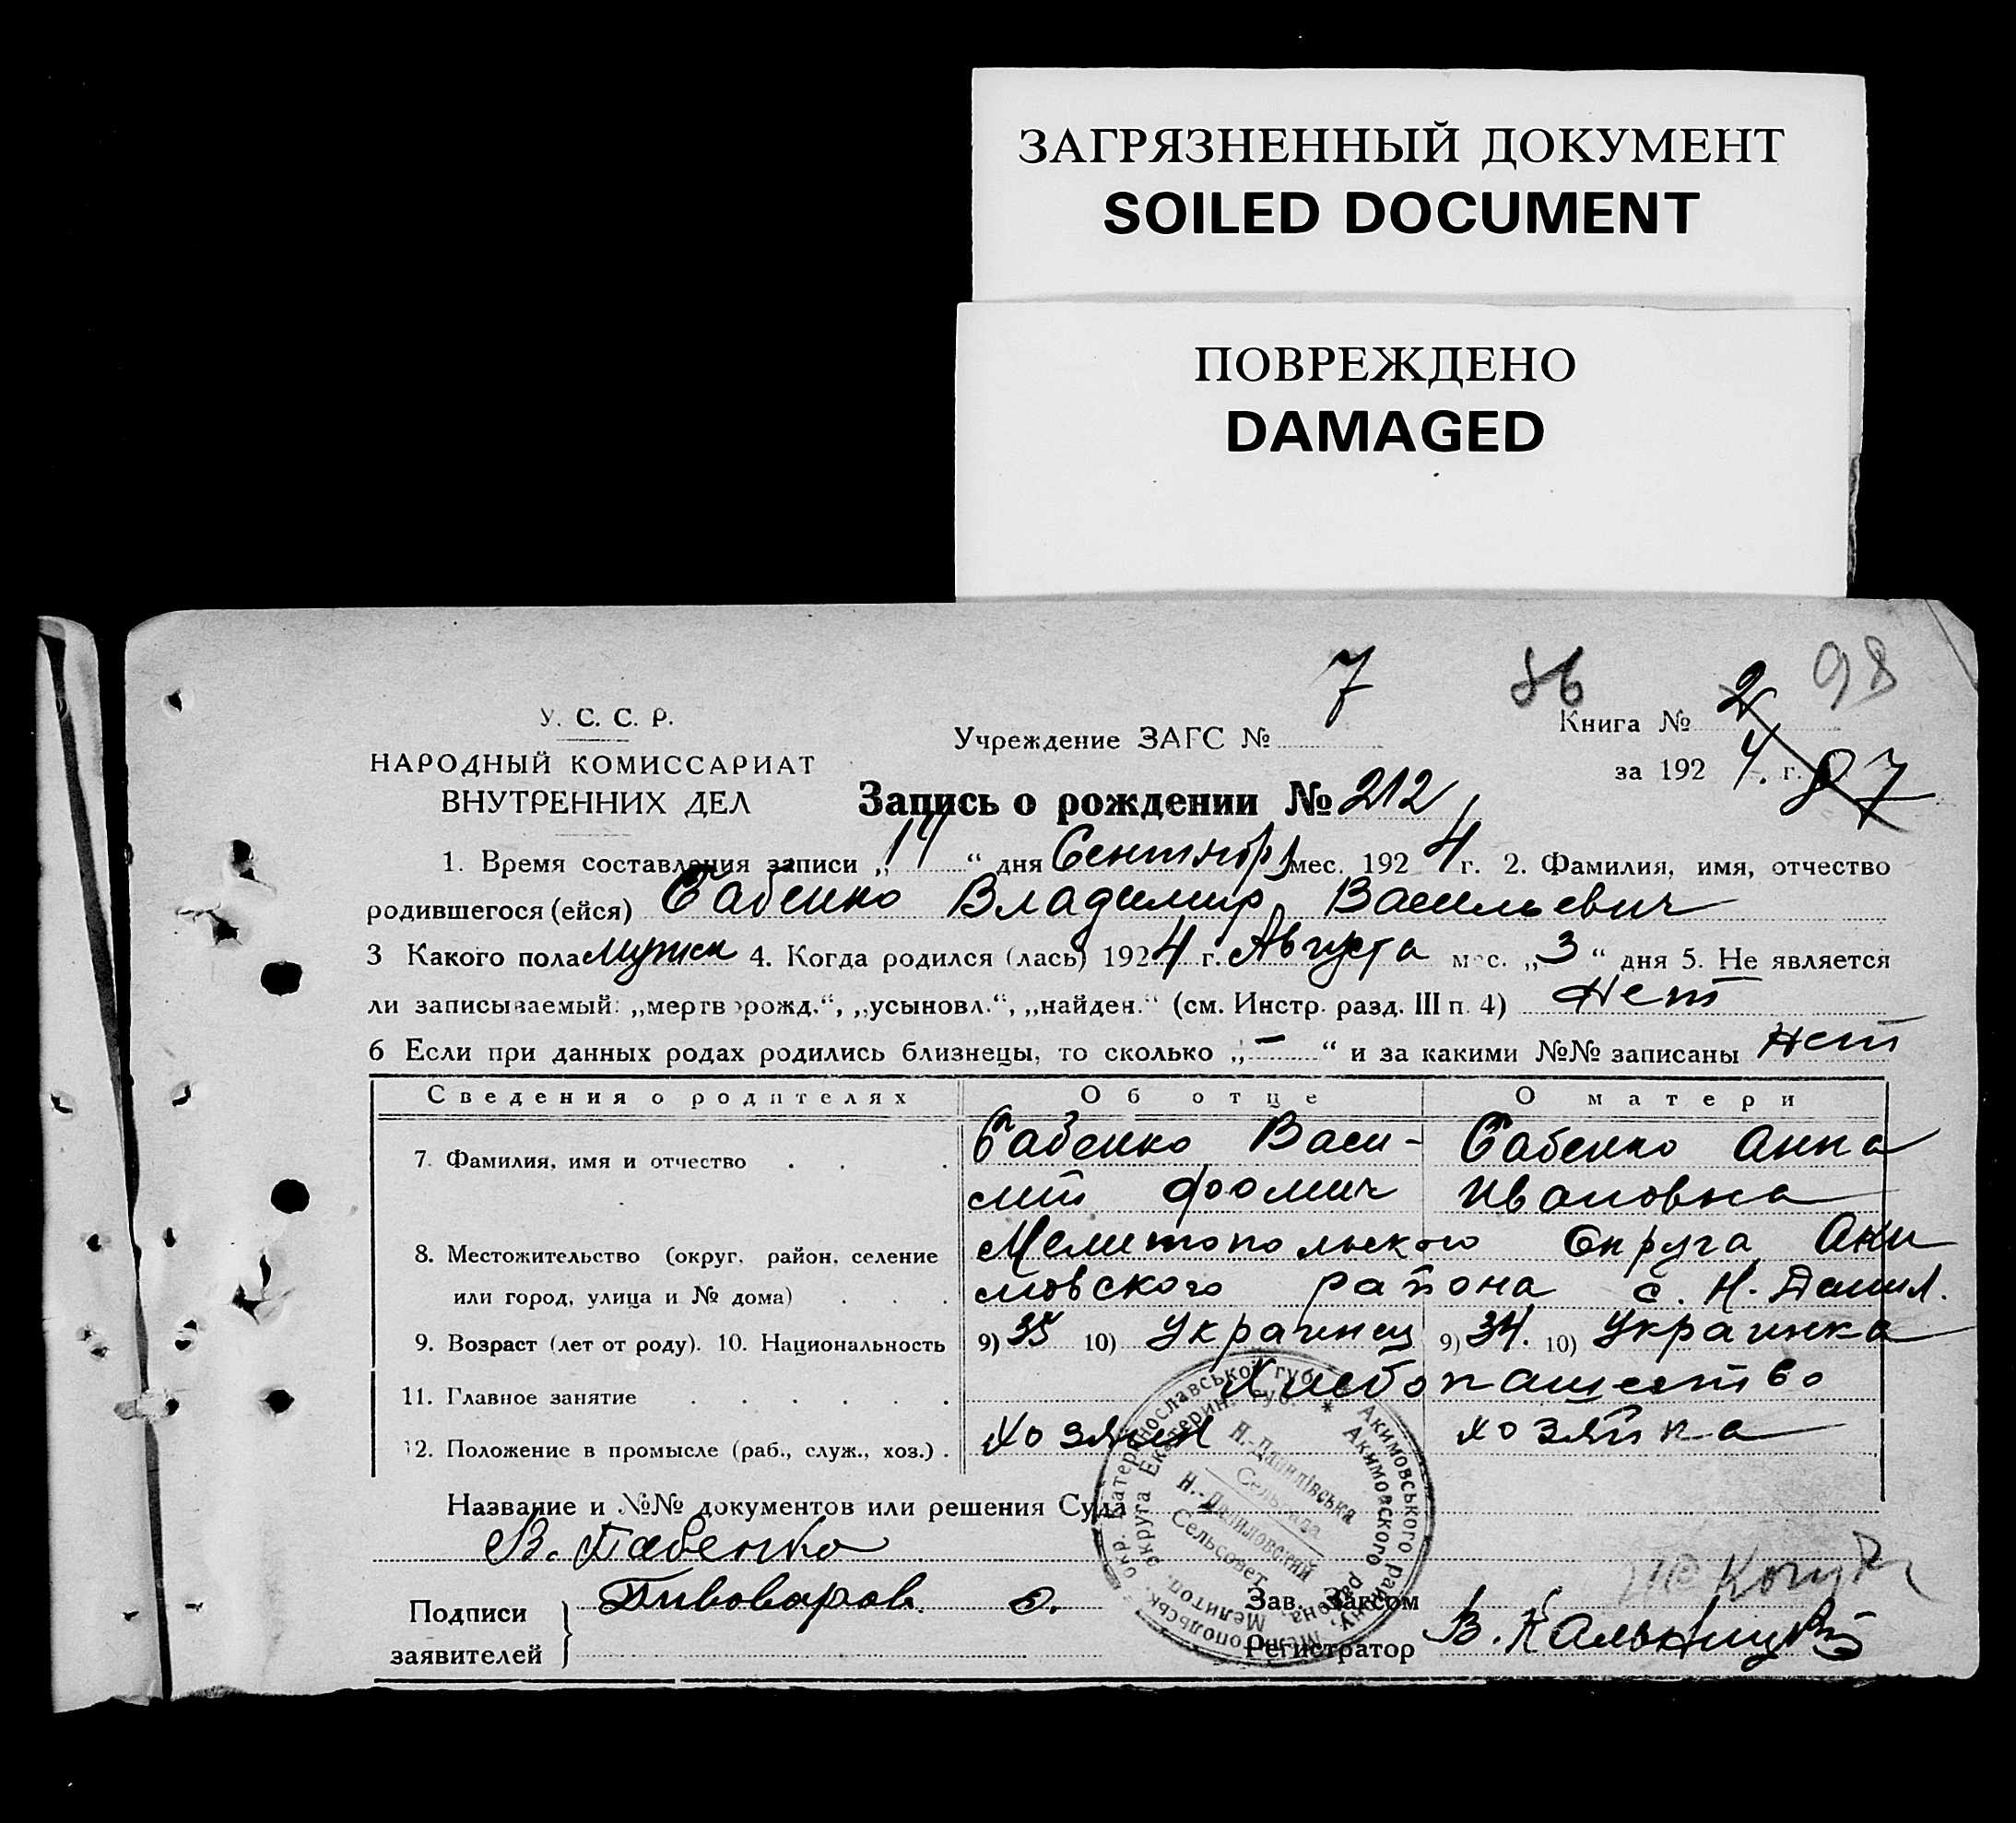 ЗАГРЯЗНЕННЫЙ ДОКУМЕНТ
SOILED DOCUMENT
ПОВРЕЖДЕНО
DAMAGED
98
7 86
У. С. С. Р.
НАРОДНЫЙ КОМИССАРИАТ
ВНУТРЕННИХ ДЕЛ
Учреждение ЗАГС №
Книга № 2
за 192 4. г. 87
Запись о рождении № 212
1. Время составления записи „ 14 “ дня Сентябр мес. 192 4 г. 2. Фамилия, имя, отчество
родившегося (ейся) Бабенко Владимир Васильевич
3 Какого пола мужск 4. Когда родился (лась) 192 4 г. Августа мес. „ 3 “ дня 5. Не является
ли записываемый: „мертворожд.“, „усыновл.“, „найден.“ (см. Инстр. разд. III п. 4) Нет
6 Если при данных родах родились близнецы, то сколько „ — “ и за какими №№ записаны Нет
Сведения о родителях Об отце О матери
7. Фамилия, имя и отчество . . . Бабенко Васи- Бабенко Анна
лий Фомич Ивановна
8. Местожительство (округ, район, селение Мелитопольского Округа Аки
или город, улица и № дома) . . . мовского района с. Н. Данил.
9. Возраст (лет от роду). 10. Национальность 9) 35 10) Украинец 9) 34. 10) Украинка
11. Главное занятие . . . . . . Хлебопашество
12. Положение в промысле (раб., служ., хоз.) . Хозяин хозяйка
Название и №№ документов или решения Суда
В. Бабенко
Подписи
заявителей
Пивоваров. О.
Зав. Загсом
Регистратор В. Кальницкий
Н.-Данилівська
Сельрада
Н.-Даниловский
Сельсовет
Акимовського району, Мелітопольськ. окр. Катеринославської губ.
Акимовского района, Мелитоп. округа Екатерин. губ.